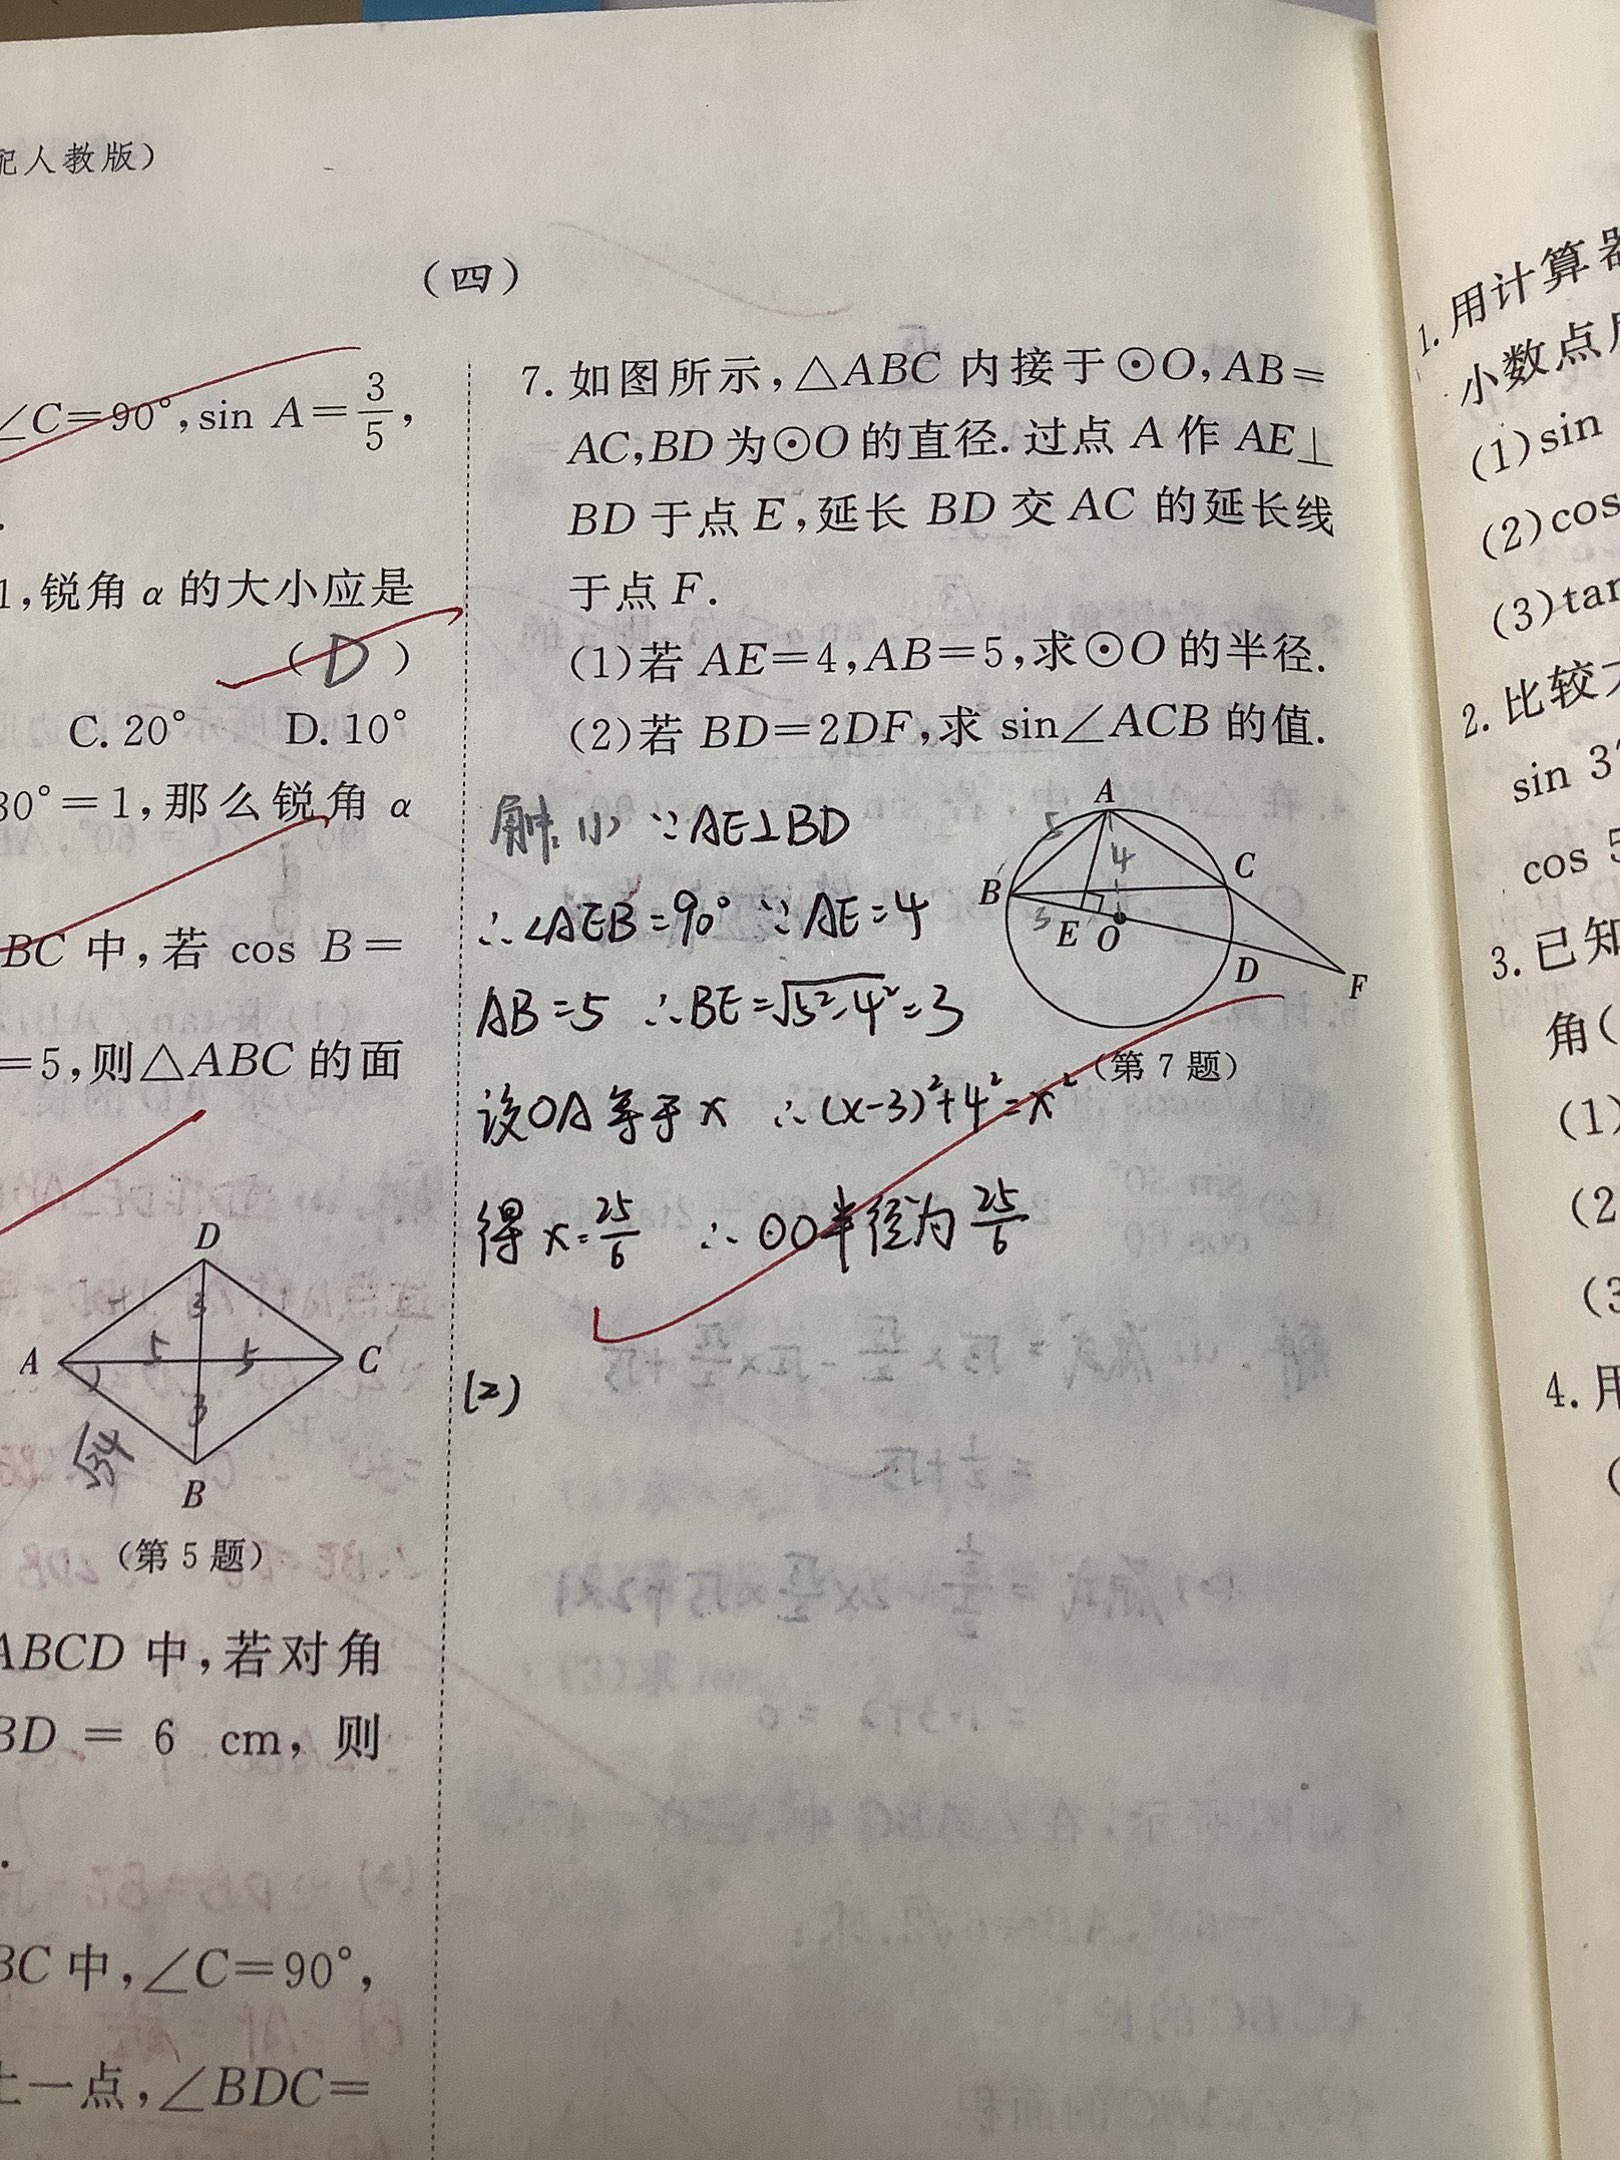 配人教版)
(四)
∠C=90°,sin A=3/5,
1,锐角 α 的大小应是
(D)
C. 20° D. 10°
30°=1,那么锐角 α
BC 中,若 cos B=
=5,则△ABC 的面
D
3
A 5 5 C
3
√34
B
(第 5 题)
ABCD 中,若对角
BD = 6 cm,则
BC 中,∠C=90°,
上一点,∠BDC=
7. 如图所示,△ABC 内接于⊙O,AB=
AC,BD 为⊙O 的直径. 过点 A 作 AE⊥
BD 于点 E,延长 BD 交 AC 的延长线
于点 F.
(1)若 AE=4,AB=5,求⊙O 的半径.
(2)若 BD=2DF,求 sin∠ACB 的值.
解:(1) ∵AE⊥BD
∴∠AEB=90° ∵AE=4
AB=5 ∴BE=√5²-4²=3
设OA等于x ∴(x-3)²+4²=x²
得x=25/6 ∴⊙O半径为25/6
(2)
A
5 4
B C
3 E O
D F
(第 7 题)
1. 用计算器
小数点
(1)sin
(2)cos
(3)tan
2. 比较大
sin 3
cos 5
3. 已知
角(
(1)
(2
(3
4. 用
(